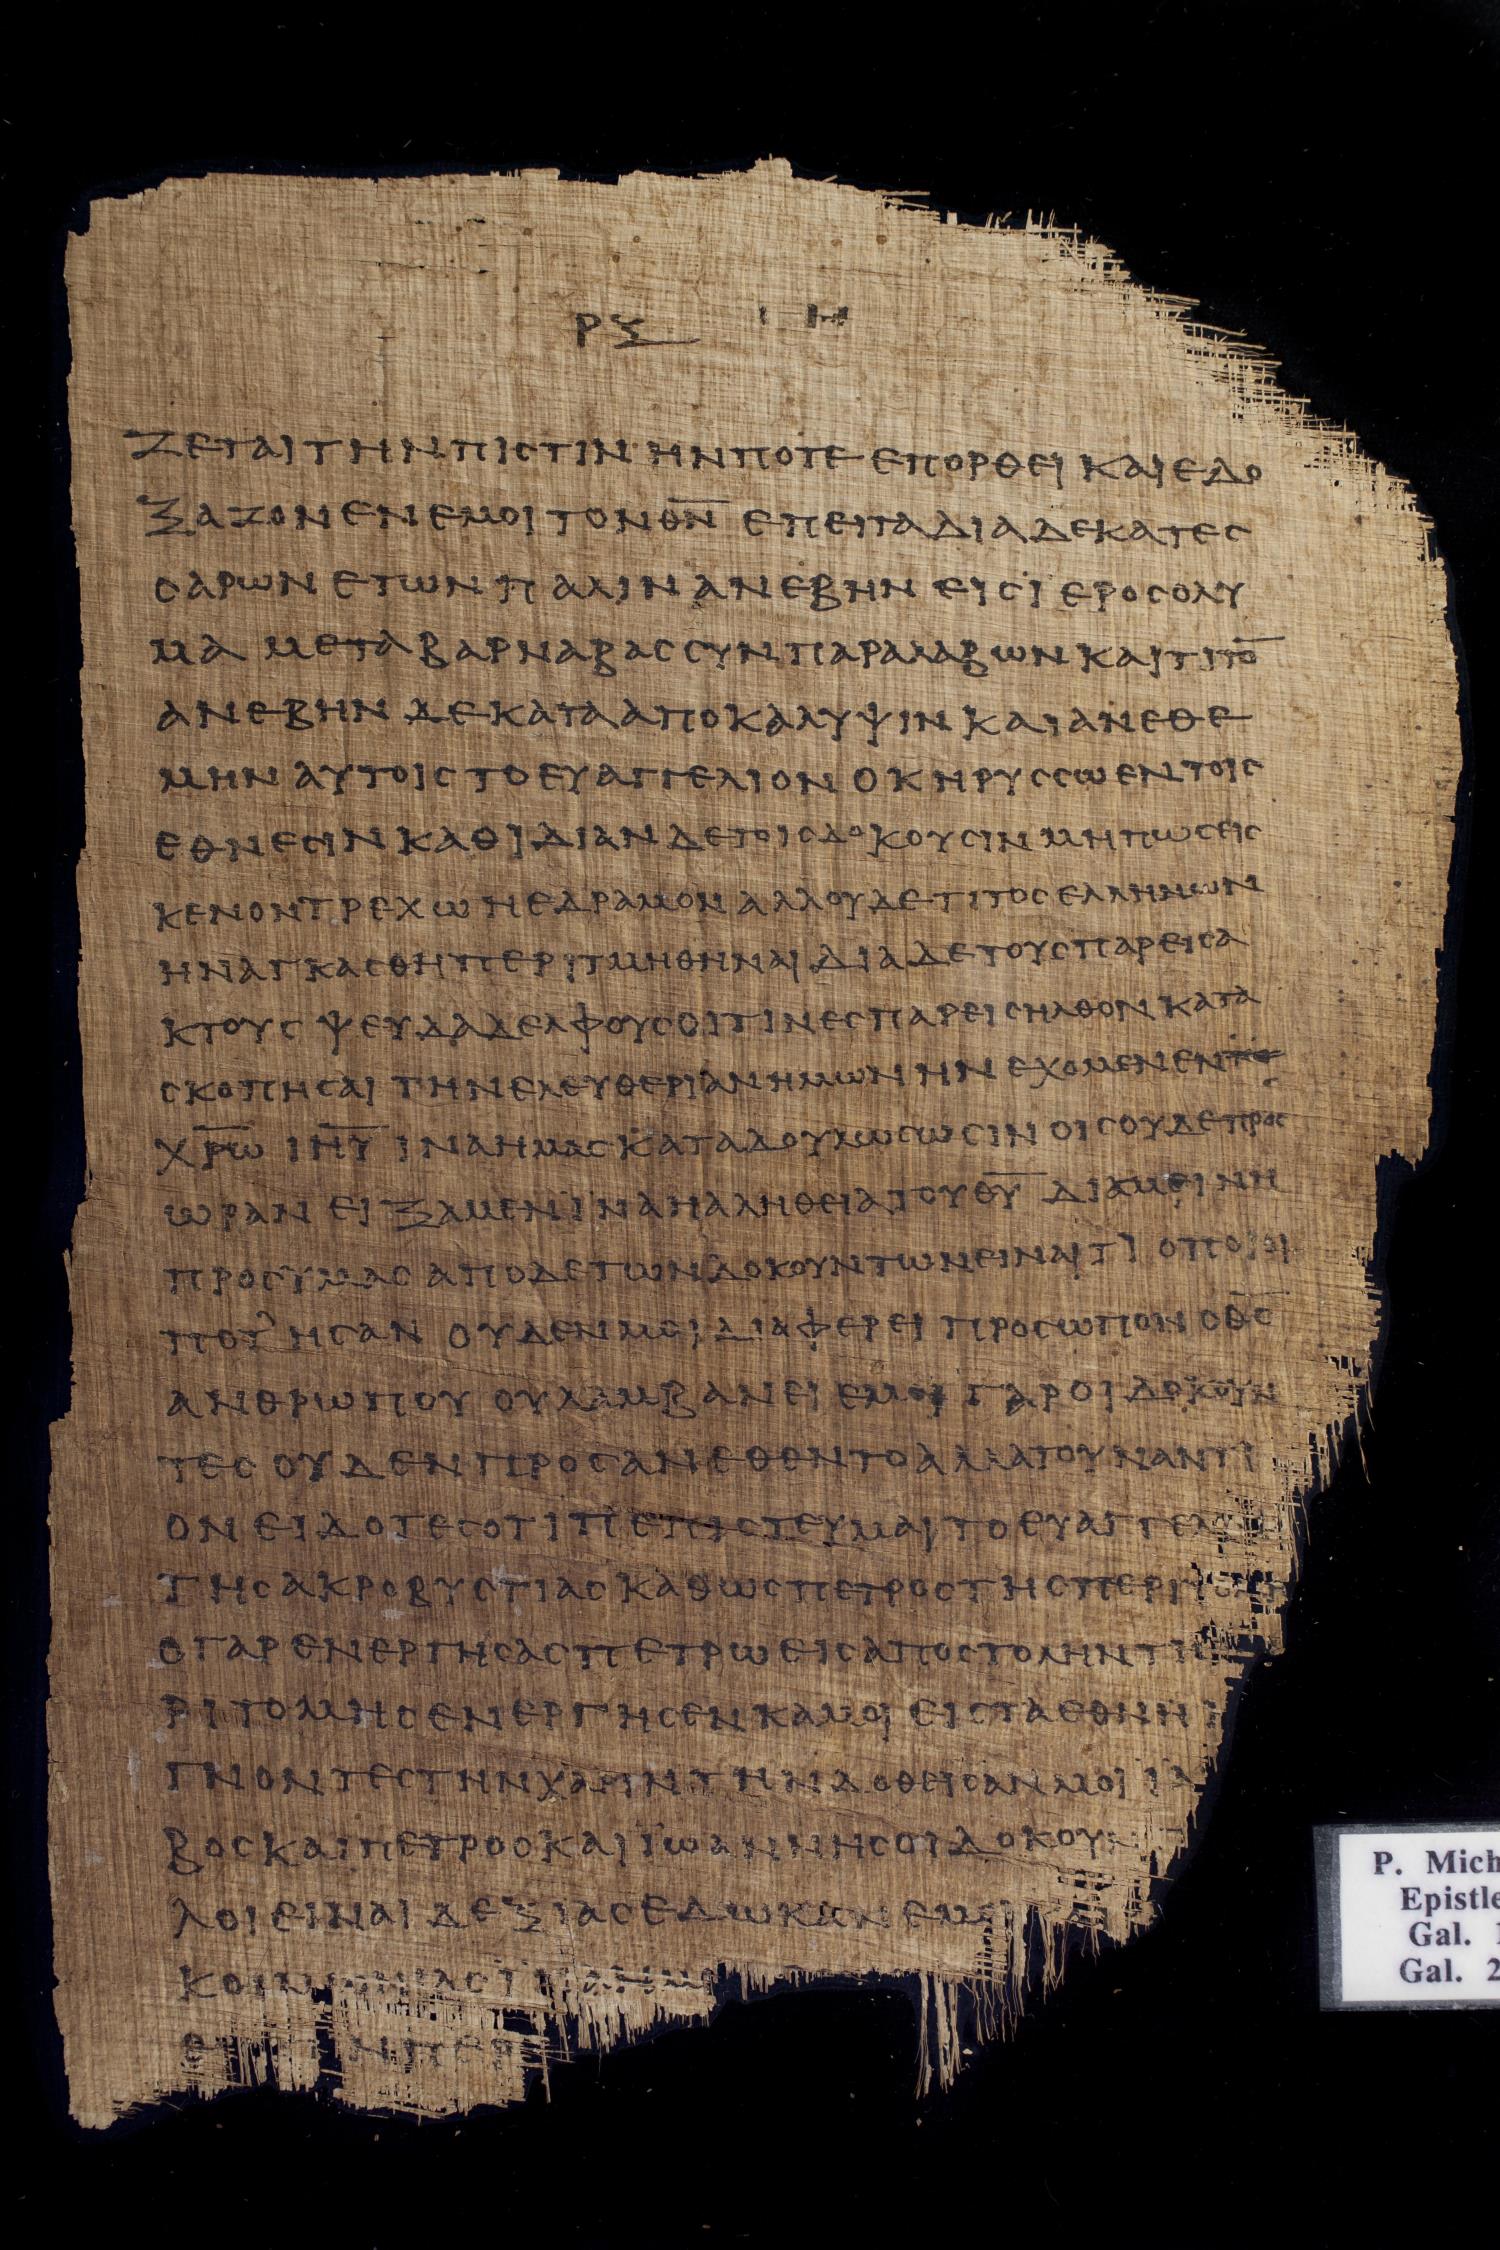 ΡΞ Ι Η
ΖΕΤΑΙ ΤΗΝ ΠΙΣΤΙΝ ΗΝ ΠΟΤΕ ΕΠΟΡΘΕΙ ΚΑΙ ΕΔΟ
ΞΑΖΟΝ ΕΝ ΕΜΟΙ ΤΟΝ Θ̅Ν̅ ΕΠΕΙΤΑ ΔΙΑ ΔΕΚΑΤΕϹ
ϹΑΡΩΝ ΕΤΩΝ ΠΑΛΙΝ ΑΝΕΒΗΝ ΕΙϹ ΙΕΡΟϹΟΛΥ
ΜΑ ΜΕΤΑ ΒΑΡΝΑΒΑϹ ϹΥΝΠΑΡΑΛΑΒΩΝ ΚΑΙ ΤΙΤΟ̅
ΑΝΕΒΗΝ ΔΕ ΚΑΤΑ ΑΠΟΚΑΛΥΨΙΝ ΚΑΙ ΑΝΕΘΕ
ΜΗΝ ΑΥΤΟΙϹ ΤΟ ΕΥΑΓΓΕΛΙΟΝ Ο ΚΗΡΥϹϹΩ ΕΝ ΤΟΙϹ
ΕΘΝΕϹΙΝ ΚΑΘ ΙΔΙΑΝ ΔΕ ΤΟΙϹ ΔΟΚΟΥϹΙΝ ΜΗ ΠΩϹ ΕΙϹ
ΚΕΝΟΝ ΤΡΕΧΩ Η ΕΔΡΑΜΟΝ ΑΛΛ ΟΥΔΕ ΤΙΤΟϹ ΕΛΛΗΝ ΩΝ
ΗΝΑΓΚΑϹΘΗ ΠΕΡΙΤΜΗΘΗΝΑΙ ΔΙΑ ΔΕ ΤΟΥϹ ΠΑΡΕΙϹΑ
ΚΤΟΥϹ ΨΕΥΔΑΔΕΛΦΟΥϹ ΟΙΤΙΝΕϹ ΠΑΡΕΙϹΗΛΘΟΝ ΚΑΤΑ
ϹΚΟΠΗϹΑΙ ΤΗΝ ΕΛΕΥΘΕΡΙΑΝ ΗΜΩΝ ΗΝ ΕΧΟΜΕΝ ΕΝ
Χ̅Ρ̅Ω̅ Ι̅Η̅Υ̅ ΙΝΑ ΗΜΑϹ ΚΑΤΑΔΟΥΛΩϹΩϹΙΝ ΟΙϹ ΟΥΔΕ ΠΡΟϹ
ΩΡΑΝ ΕΙΞΑΜΕΝ ΙΝΑ Η ΑΛΗΘΕΙΑ ΤΟΥ Θ̅Υ̅ ΔΙΑΜΕΙΝΗ
ΠΡΟϹ ΥΜΑϹ ΑΠΟ ΔΕ ΤΩΝ ΔΟΚΟΥΝΤΩΝ ΕΙΝΑΙ ΤΙ ΟΠΟΙΟΙ
ΠΟΤ᾽ ΗϹΑΝ ΟΥΔΕΝ ΜΟΙ ΔΙΑΦΕΡΕΙ ΠΡΟϹΩΠΟΝ Ο Θ̅Ϲ̅
ΑΝΘΡΩΠΟΥ ΟΥ ΛΑΜΒΑΝΕΙ ΕΜΟΙ ΓΑΡ ΟΙ ΔΟΚΟΥΝ
ΤΕϹ ΟΥΔΕΝ ΠΡΟϹΑΝΕΘΕΝΤΟ ΑΛΛΑ ΤΟΥΝΑΝΤΙ
ΟΝ ΕΙΔΟΤΕϹ ΟΤΙ ΠΕΠΙϹΤΕΥΜΑΙ ΤΟ ΕΥΑΓΓΕΛΙΟΝ
ΤΗϹ ΑΚΡΟΒΥϹΤΙΑϹ ΚΑΘΩϹ ΠΕΤΡΟϹ ΤΗϹ
Ο ΓΑΡ ΕΝΕΡΓΗϹΑϹ ΠΕΤΡΩ ΕΙϹ ΑΠΟϹΤΟΛΗΝ
ΡΙΤΟΜΗϹ ΕΝΕΡΓΗϹΕΝ ΚΑΜΟΙ ΕΙϹ ΤΑ ΕΘΝΗ
ΓΝΟΝΤΕϹ ΤΗΝ ΧΑΡΙΝ ΤΗΝ ΔΟΘΕΙϹΑΝ ΜΟΙ ΙΑ
ΒΟϹ ΚΑΙ ΠΕΤΡΟϹ ΚΑΙ ΙΩΑΝΝΗϹ ΟΙ ΔΟΚΟΥΝ
ΛΟΙ ΕΙΝΑΙ ΔΕΞΙΑϹ ΕΔΩΚΑΝ ΕΜΟΙ
ΚΟΙΝΩΝΙΑϹ ΙΝΑ ΗΜ
P. Mich
Epistle
Gal.
Gal. 2